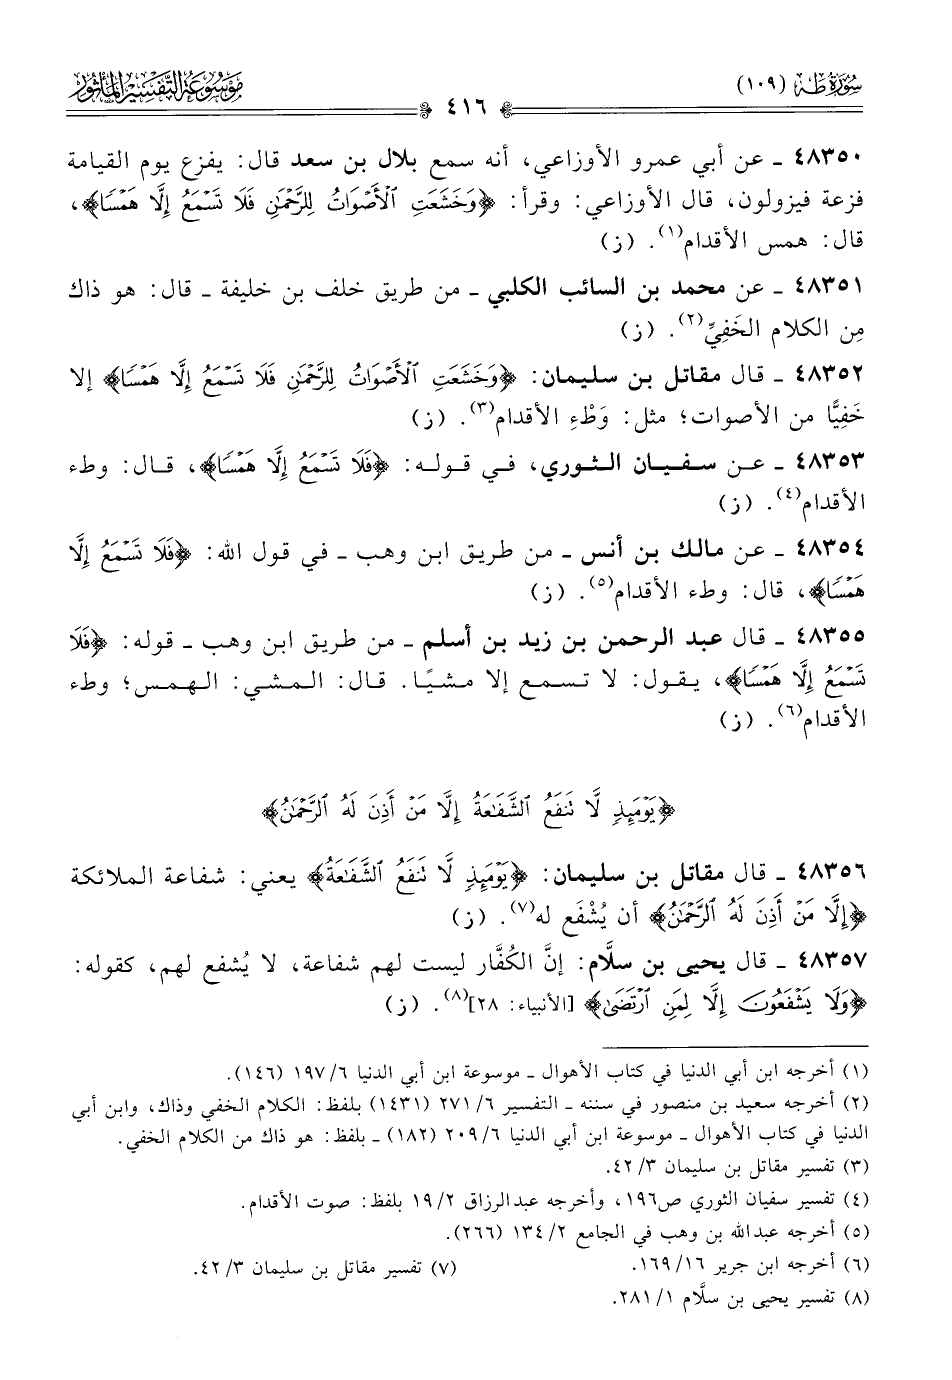 سُورَةُ طه (١٠٩)
٤١٦
مَوْسُوعَةُ التَّفْسِيرِ المَأْثُور
٤٨٣٥٠ ـ عن أبي عمرو الأوزاعي، أنه سمع بلال بن سعد قال: يفزع يوم القيامة
فزعة فيزولون، قال الأوزاعي: وقرأ: ﴿وَخَشَعَتِ ٱلْأَصْوَاتُ لِلرَّحْمَٰنِ فَلَا تَسْمَعُ إِلَّا هَمْسًا﴾،
قال: همس الأقدام(١). (ز)
٤٨٣٥١ ـ عن محمد بن السائب الكلبي ـ من طريق خلف بن خليفة ـ قال: هو ذاك
مِن الكلام الخَفِيِّ(٢). (ز)
٤٨٣٥٢ ـ قال مقاتل بن سليمان: ﴿وَخَشَعَتِ ٱلْأَصْوَاتُ لِلرَّحْمَٰنِ فَلَا تَسْمَعُ إِلَّا هَمْسًا﴾ إلا
خَفِيًّا من الأصوات؛ مثل: وَطْءِ الأقدام(٣). (ز)
٤٨٣٥٣ ـ عن سفيان الثوري، في قوله: ﴿فَلَا تَسْمَعُ إِلَّا هَمْسًا﴾، قال: وطء
الأقدام(٤). (ز)
٤٨٣٥٤ ـ عن مالك بن أنس ـ من طريق ابن وهب ـ في قول الله: ﴿فَلَا تَسْمَعُ إِلَّا
هَمْسًا﴾، قال: وطء الأقدام(٥). (ز)
٤٨٣٥٥ ـ قال عبد الرحمن بن زيد بن أسلم ـ من طريق ابن وهب ـ قوله: ﴿فَلَا
تَسْمَعُ إِلَّا هَمْسًا﴾، يقول: لا تسمع إلا مشيًا. قال: المشي: الهمس؛ وطء
الأقدام(٦). (ز)
﴿يَوْمَئِذٍ لَّا تَنفَعُ ٱلشَّفَٰعَةُ إِلَّا مَنْ أَذِنَ لَهُ ٱلرَّحْمَٰنُ﴾
٤٨٣٥٦ ـ قال مقاتل بن سليمان: ﴿يَوْمَئِذٍ لَّا تَنفَعُ ٱلشَّفَٰعَةُ﴾ يعني: شفاعة الملائكة
﴿إِلَّا مَنْ أَذِنَ لَهُ ٱلرَّحْمَٰنُ﴾ أن يُشْفَع له(٧). (ز)
٤٨٣٥٧ ـ قال يحيى بن سلَّام: إنَّ الكُفَّار ليست لهم شفاعة، لا يُشفع لهم، كقوله:
﴿وَلَا يَشْفَعُونَ إِلَّا لِمَنِ ٱرْتَضَىٰ﴾ [الأنبياء: ٢٨](٨). (ز)
(١) أخرجه ابن أبي الدنيا في كتاب الأهوال ـ موسوعة ابن أبي الدنيا ٦/ ١٩٧ (١٤٦).
(٢) أخرجه سعيد بن منصور في سننه ـ التفسير ٦/ ٢٧١ (١٤٣١) بلفظ: الكلام الخفي وذاك، وابن أبي
الدنيا في كتاب الأهوال ـ موسوعة ابن أبي الدنيا ٦/ ٢٠٩ (١٨٢) ـ بلفظ: هو ذاك من الكلام الخفي.
(٣) تفسير مقاتل بن سليمان ٣/ ٤٢.
(٤) تفسير سفيان الثوري ص١٩٦، وأخرجه عبدالرزاق ٢/ ١٩ بلفظ: صوت الأقدام.
(٥) أخرجه عبدالله بن وهب في الجامع ٢/ ١٣٤ (٢٦٦).
(٦) أخرجه ابن جرير ١٦/ ١٦٩. (٧) تفسير مقاتل بن سليمان ٣/ ٤٢.
(٨) تفسير يحيى بن سلَّام ١/ ٢٨١.